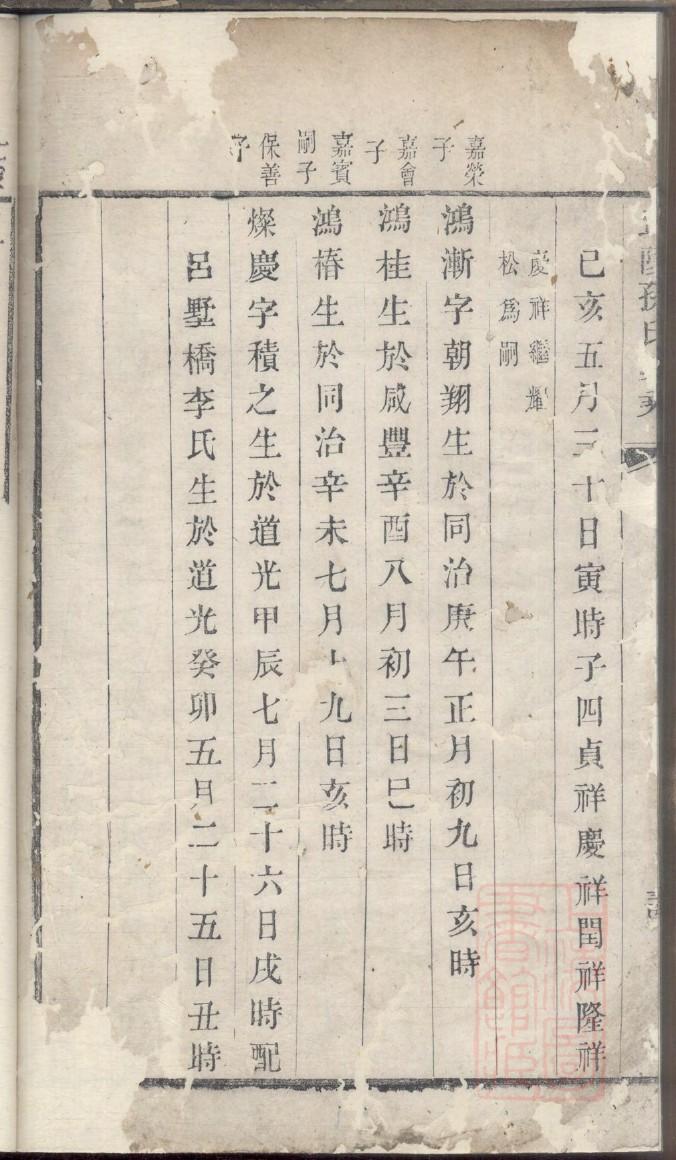 己亥五月三十日寅時子四貞祥慶祥閏祥隆祥
慶祥繼耀
松爲嗣
嘉榮
子
鴻漸字朝翔生於同治庚午正月初九日亥時
嘉會
子
鴻桂生於咸豐辛酉八月初三日巳時
嘉賓
嗣子
鴻椿生於同治辛未七月十九日亥時
保善
子
燦慶字積之生於道光甲辰七月二十六日戌時配
呂墅橋李氏生於道光癸卯五月二十五日丑時